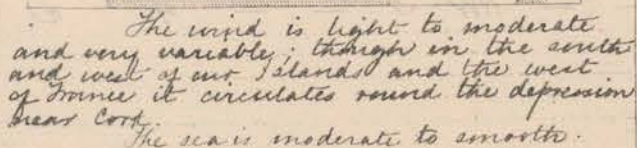 The wind is light to moderate
and very variable; though in the south
and west of our Islands and the west
of France it circulates round the depression
near Cork.
The sea is moderate to smooth.